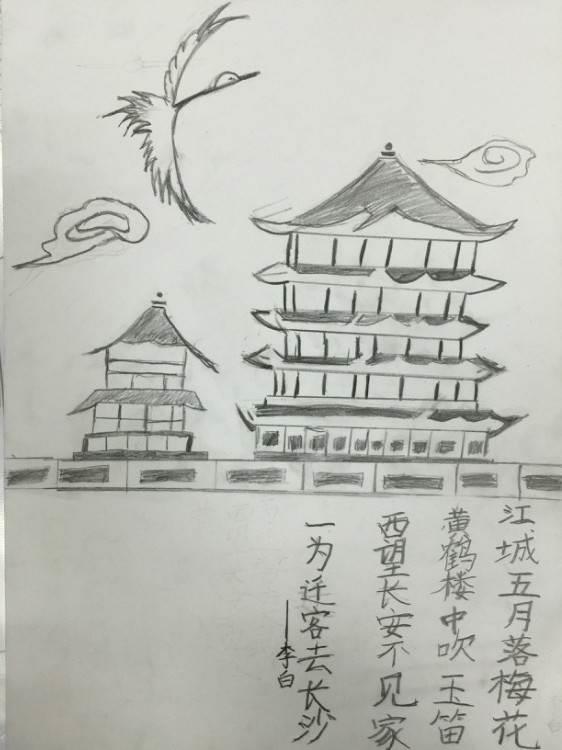 江城五月落梅花
黄鹤楼中吹玉笛
西望长安不见家
一为迁客去长沙
——李白